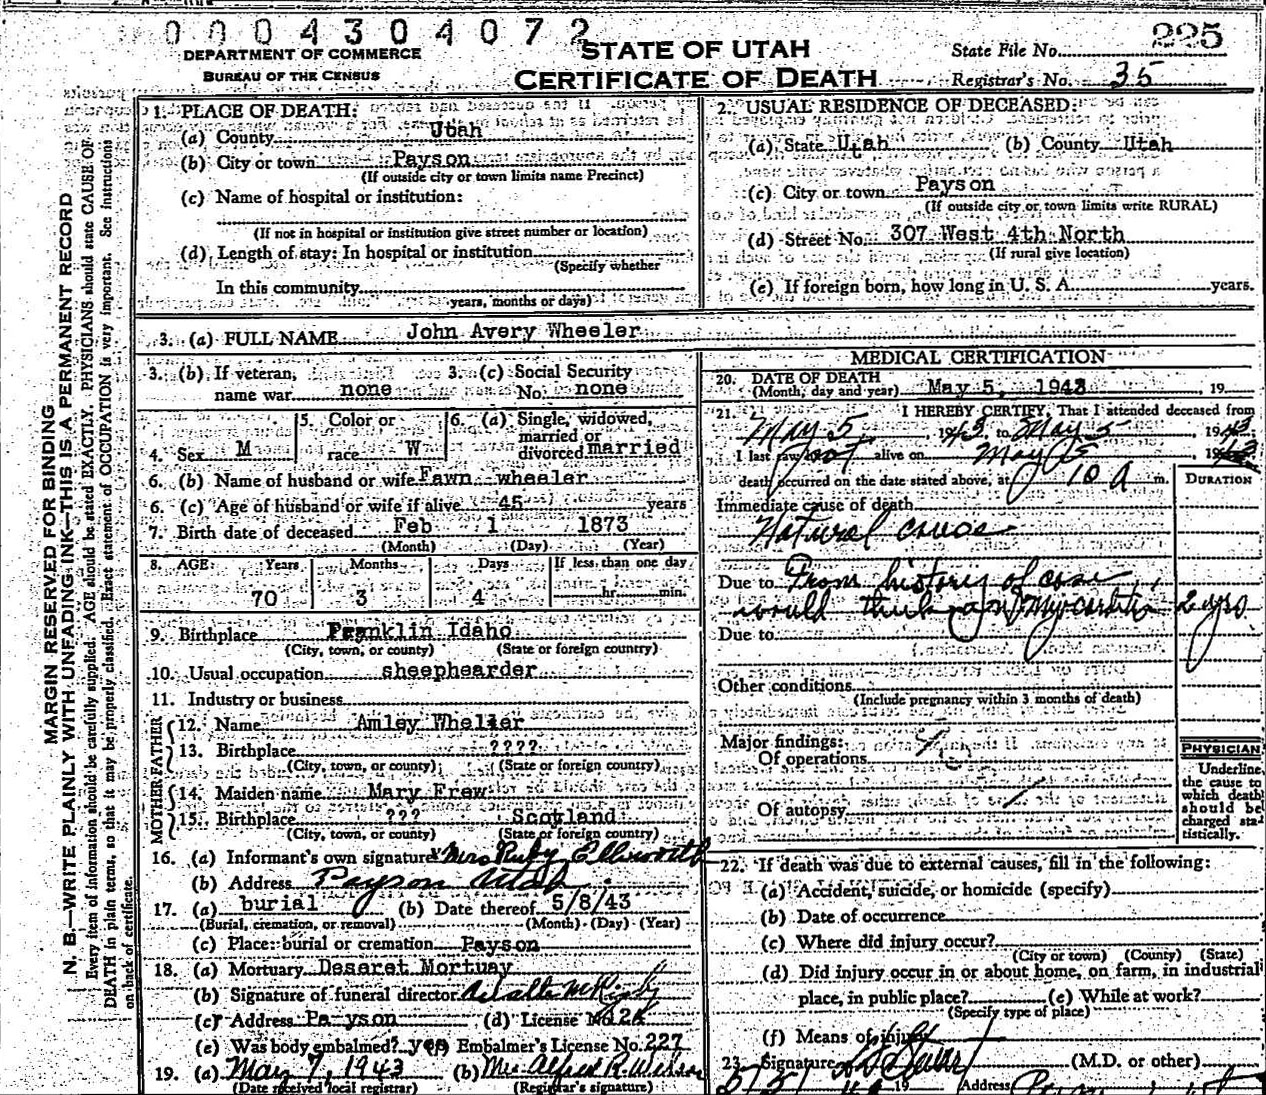 0004304072
DEPARTMENT OF COMMERCE
BUREAU OF THE CENSUS
STATE OF UTAH
CERTIFICATE OF DEATH
State File No. 225
Registrar's No. 35
MARGIN RESERVED FOR BINDING
N. B.—WRITE PLAINLY WITH UNFADING INK—THIS IS A PERMANENT RECORD
Every item of information should be carefully supplied. AGE should be stated EXACTLY. PHYSICIANS should state CAUSE OF
DEATH in plain terms, so that it may be properly classified. Exact statement of OCCUPATION is very important. See instructions
on back of certificate.
1. PLACE OF DEATH:
(a) County Utah
(b) City or town Payson
(If outside city or town limits name Precinct)
(c) Name of hospital or institution:
(If not in hospital or institution give street number or location)
(d) Length of stay: In hospital or institution
(Specify whether
In this community
years, months or days)
2. USUAL RESIDENCE OF DECEASED:
(a) State Utah (b) County Utah
(c) City or town Payson
(If outside city or town limits write RURAL)
(d) Street No. 307 West 4th North
(If rural give location)
(e) If foreign born, how long in U. S. A. years.
3. (a) FULL NAME John Avery Wheeler
3. (b) If veteran, name war none 3. (c) Social Security No. none
4. Sex M 5. Color or race W 6. (a) Single, widowed, married or divorced married
6. (b) Name of husband or wife Fawn wheeler
6. (c) Age of husband or wife if alive 45 years
7. Birth date of deceased Feb. 1 1873
(Month) (Day) (Year)
8. AGE: Years Months Days If less than one day
70 3 4 hr. min.
9. Birthplace Franklin Idaho
(City, town, or county) (State or foreign country)
10. Usual occupation sheephearder
11. Industry or business
FATHER
12. Name Amley Wheller
13. Birthplace ????
(City, town, or county) (State or foreign country)
MOTHER
14. Maiden name Mary Frew
15. Birthplace ??? Scotland
(City, town, or county) (State or foreign country)
16. (a) Informant's own signature Mrs Ruby Ellsworth
(b) Address Payson Utah
17. (a) burial (b) Date thereof 5/8/43
(Burial, cremation, or removal) (Month) (Day) (Year)
(c) Place: burial or cremation Payson
18. (a) Mortuary Deseret Mortuay
(b) Signature of funeral director
(c) Address Payson (d) License No. 24
(e) Was body embalmed? yes Embalmer's License No. 227
19. (a) May 7, 1943 (b) Mrs Alfred R. Wilson
(Date received local registrar) (Registrar's signature)
MEDICAL CERTIFICATION
20. DATE OF DEATH
(Month, day and year) May 5, 1943 , 19
21. I HEREBY CERTIFY, That I attended deceased from
May 5, 1943 to May 5, 1943
I last saw alive on May 5, 19
death occurred on the date stated above, at 10 A m. DURATION
Immediate cause of death
Natural cause
Due to From history of case,
would think Myocarditis 2 yrs
Due to
Other conditions
(Include pregnancy within 3 months of death)
Major findings:
Of operations
Of autopsy
PHYSICIAN
Underline
the cause to
which death
should be
charged sta-
tistically.
22. If death was due to external causes, fill in the following:
(a) Accident, suicide, or homicide (specify)
(b) Date of occurrence
(c) Where did injury occur?
(City or town) (County) (State)
(d) Did injury occur in or about home, on farm, in industrial
place, in public place? (e) While at work?
(Specify type of place)
(f) Means of injury
23. Signature (M.D. or other)
19 Address Payson